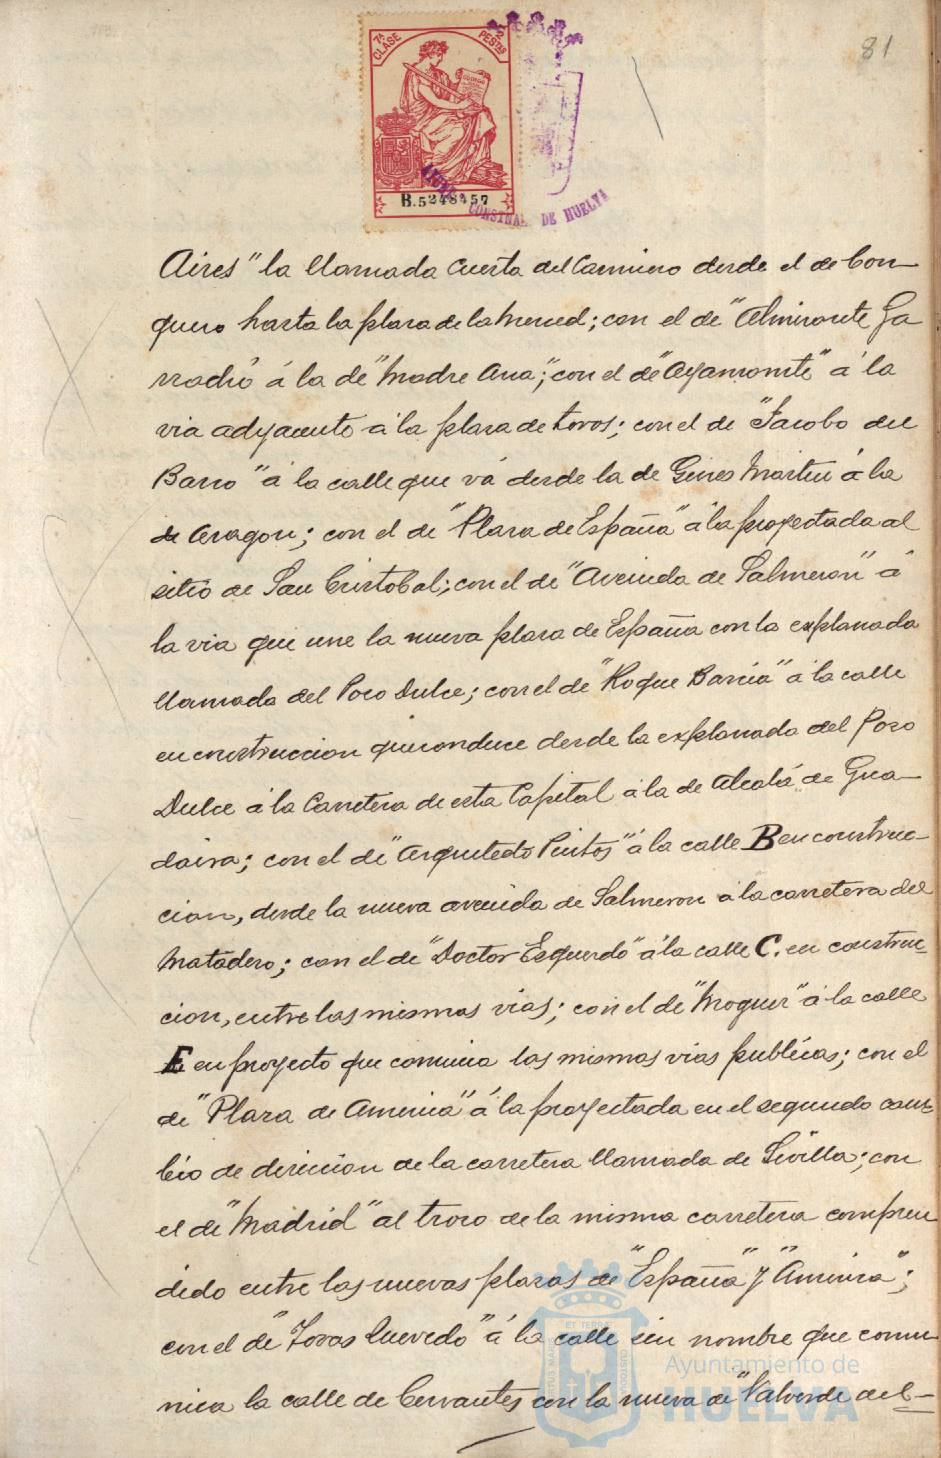 81
7ª CLASE
2 PESTAS
B.5248457
AYUNT CONSTNAL DE HUELVA
Aires" la llamada Cuesta del Carnicero desde el de Con-
quero hasta la plaza de la Merced; con el de "Almirante Ga
rrocho" á la de "Madre Ana"; con el de "Ayamonte" á la
via adyacente á la plaza de toros; con el de "Jacobo del
Barco" á la calle que vá desde la de Gines Martin á la
de Aragon; con el de "Plaza de España" á la proyectada al
sitio de San Cristobal; con el de "Avenida de Salmeron" á
la via que une la nueva plaza de España con la explanada
llamada del Pozo Dulce; con el de "Roque Barcia" á la calle
en construccion que conduce desde la explanada del Pozo
Dulce á la Carretera de esta Capital á la de Alcalá de Gua-
daira; con el de "Arquitecto Pintos" á la calle B en construc-
cion, desde la nueva avenida de Salmeron á la carretera del
Matadero; con el de "Doctor Esquerdo" á la calle C. en construc-
cion, entre las mismas vias; con el de "Moguer" á la calle
E en proyecto que comunica las mismas vias publicas; con el
de "Plaza de America" á la proyectada en el segundo cam-
bio de direccion de la carretera llamada de Sevilla; con
el de "Madrid" al trozo de la misma carretera compren
dido entre las nuevas plazas de "España" y "America";
con el de "Quevedo" á la calle sin nombre que comu-
nica la calle de Cervantes con la nueva de "Valverde del-
Ayuntamiento de
HUELVA